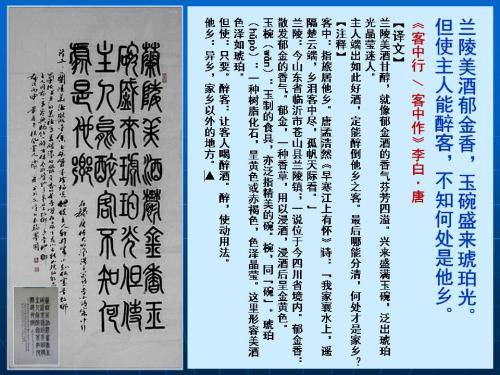 兰陵美酒郁金香，玉碗盛来琥珀光。
但使主人能醉客，不知何处是他乡。
《客中行 / 客中作》李白·唐
【译文】
兰陵美酒甘醇，就像郁金酒的香气芬芳四溢。兴来盛满玉碗，泛出琥珀
光晶莹迷人。
主人端出如此好酒，定能醉倒他乡之客。最后哪能分清，何处才是家乡？
【注释】
客中：指旅居他乡。唐孟浩然《早寒江上有怀》诗：「我家襄水上，遥
隔楚云端，乡泪客中尽，孤帆天际看。」
兰陵：今山东省临沂市苍山县兰陵镇；一说位于今四川省境内。郁金香：
散发郁金的香气。郁金，一种香草，用以浸酒，浸酒后呈金黄色。
玉椀（wǎn）：玉制的食具，亦泛指精美的碗。椀，同「碗」。琥珀
（hǔpò）：一种树脂化石，呈黄色或赤褐色，色泽晶莹。这里形容美酒
色泽如琥珀
但使：只要。醉客：让客人喝醉酒。醉，使动用法。
他乡：异乡，家乡以外的地方。▲
蘭陵美酒鬱金香玉
碗盛來琥珀光但使
主人能醉客不知何
處是他鄉